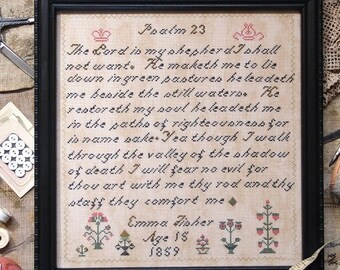 Psalm 23
The Lord is my shepherd I shall
not want. He maketh me to lie
down in green pastures he leadeth
me beside the still waters. He
restoreth my soul he leadeth me
in the paths of righteousness for
is name sake. Yea though I walk
through the valley of the shadow
of death I will fear no evil for
thou art with me thy rod and thy
staff they comfort me
Emma Fisher
Age
1859